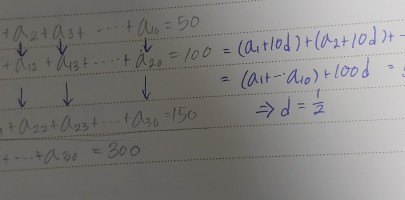 +a₂+a₃+ ⋯ +a₁₀=50
+a₁₂+a₁₃+ ⋯ +a₂₀=100 = (a₁+10d)+(a₂+10d)+
= (a₁+⋯a₁₀)+100d =
+a₂₂+a₂₃+ ⋯ +a₃₀=150
⇒ d = 1/2
+⋯+a₃₀ = 300